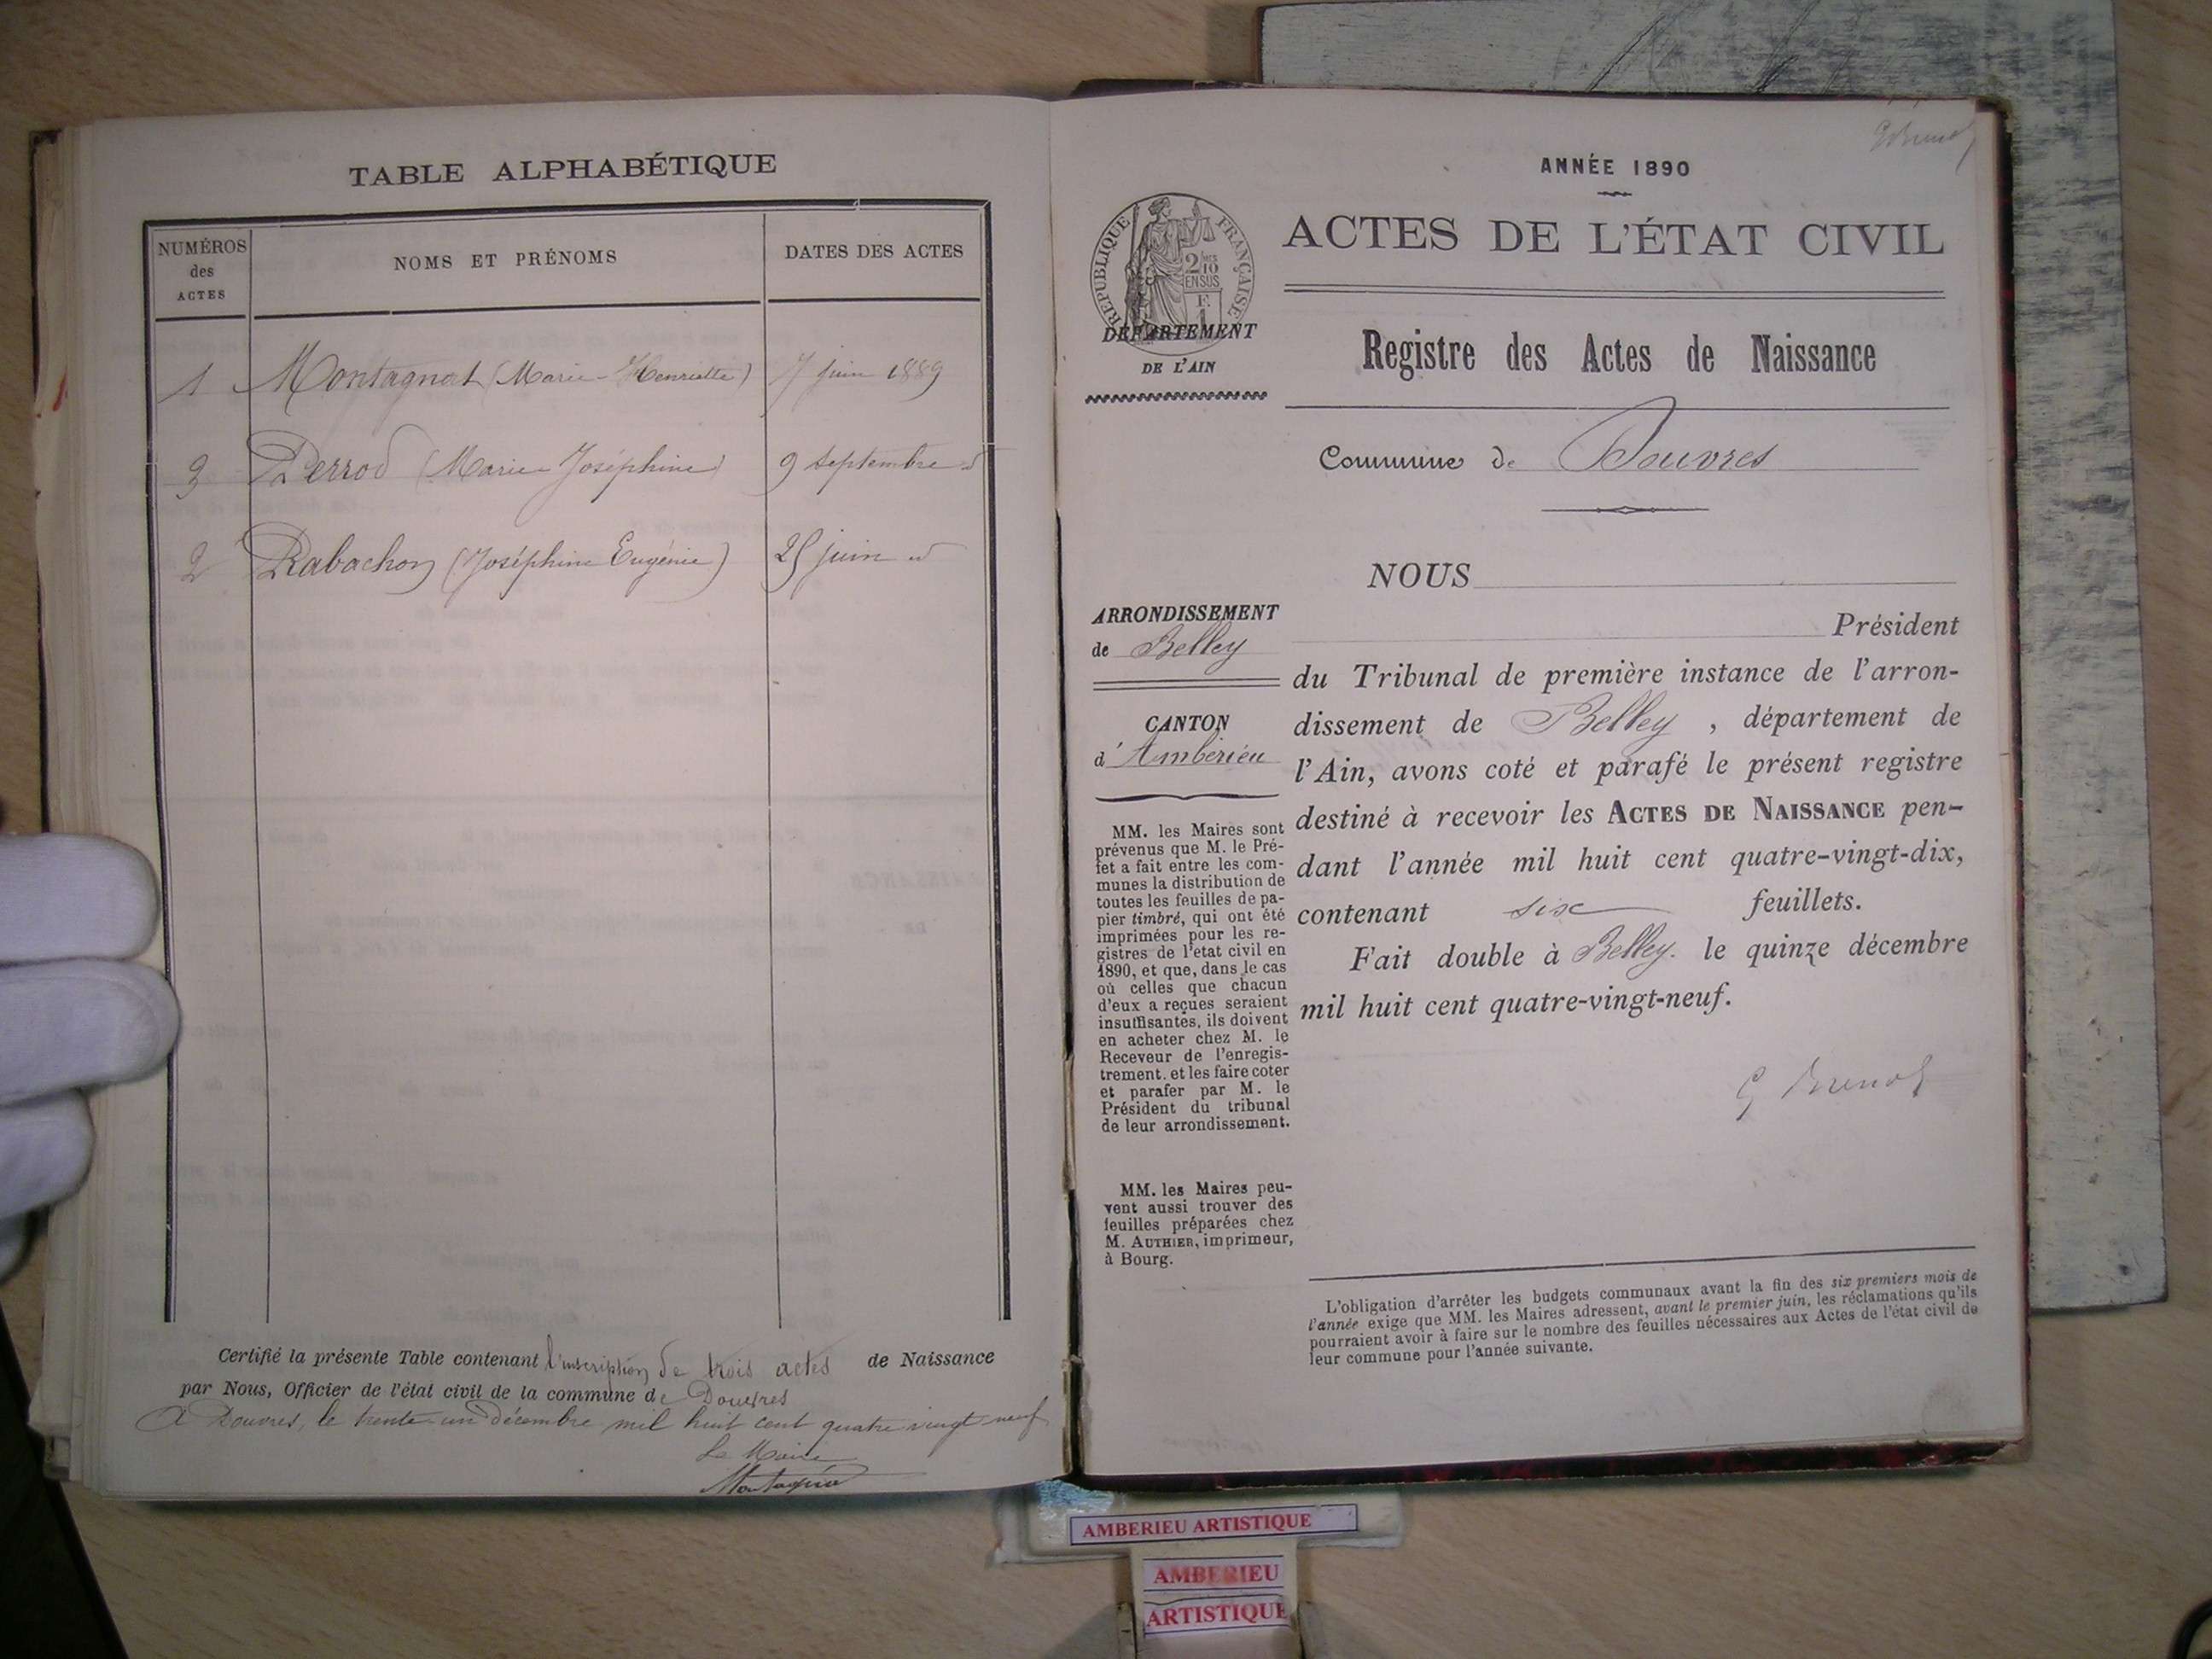 TABLE ALPHABÉTIQUE
NUMÉROS
des
ACTES
NOMS ET PRÉNOMS
DATES DES ACTES
1 Montagnat (Marie-Henriette) 7 juin 1889
3 Perrod (Marie-Joséphine) 9 septembre d
2 Rabachon (Joséphine Eugénie) 25 juin d
Certifié la présente Table contenant l'inscription de trois actes de Naissance
par Nous, Officier de l'état civil de la commune de Douvres
A Douvres, le trente-un décembre mil huit cent quatre vingt neuf
Le Maire
ANNÉE 1890
ACTES DE L'ÉTAT CIVIL
RÉPUBLIQUE FRANÇAISE
2/10
EN SUS
DÉPARTEMENT
DE L'AIN
Registre des Actes de Naissance
Commune de Douvres
ARRONDISSEMENT
de Belley
CANTON
d'Ambérieu
MM. les Maires sont
prévenus que M. le Pré-
fet a fait entre les com-
munes la distribution de
toutes les feuilles de pa-
pier timbré, qui ont été
imprimées pour les re-
gistres de l'état civil en
1890, et que, dans le cas
où celles que chacun
d'eux a reçues seraient
insuffisantes, ils doivent
en acheter chez M. le
Receveur de l'enregis-
trement. et les faire coter
et parafer par M. le
Président du tribunal
de leur arrondissement.
MM. les Maires peu-
vent aussi trouver des
feuilles préparées chez
M. AUTHIER, imprimeur,
à Bourg.
NOUS
Président
du Tribunal de première instance de l'arron-
dissement de Belley, département de
l'Ain, avons coté et parafé le présent registre
destiné à recevoir les ACTES DE NAISSANCE pen-
dant l'année mil huit cent quatre-vingt-dix,
contenant six feuillets.
Fait double à Belley. le quinze décembre
mil huit cent quatre-vingt-neuf.
L'obligation d'arrêter les budgets communaux avant la fin des six premiers mois de
l'année exige que MM. les Maires adressent, avant le premier juin, les réclamations qu'ils
pourraient avoir à faire sur le nombre des feuilles nécessaires aux Actes de l'état civil de
leur commune pour l'année suivante.
AMBERIEU ARTISTIQUE
AMBERIEU
ARTISTIQUE